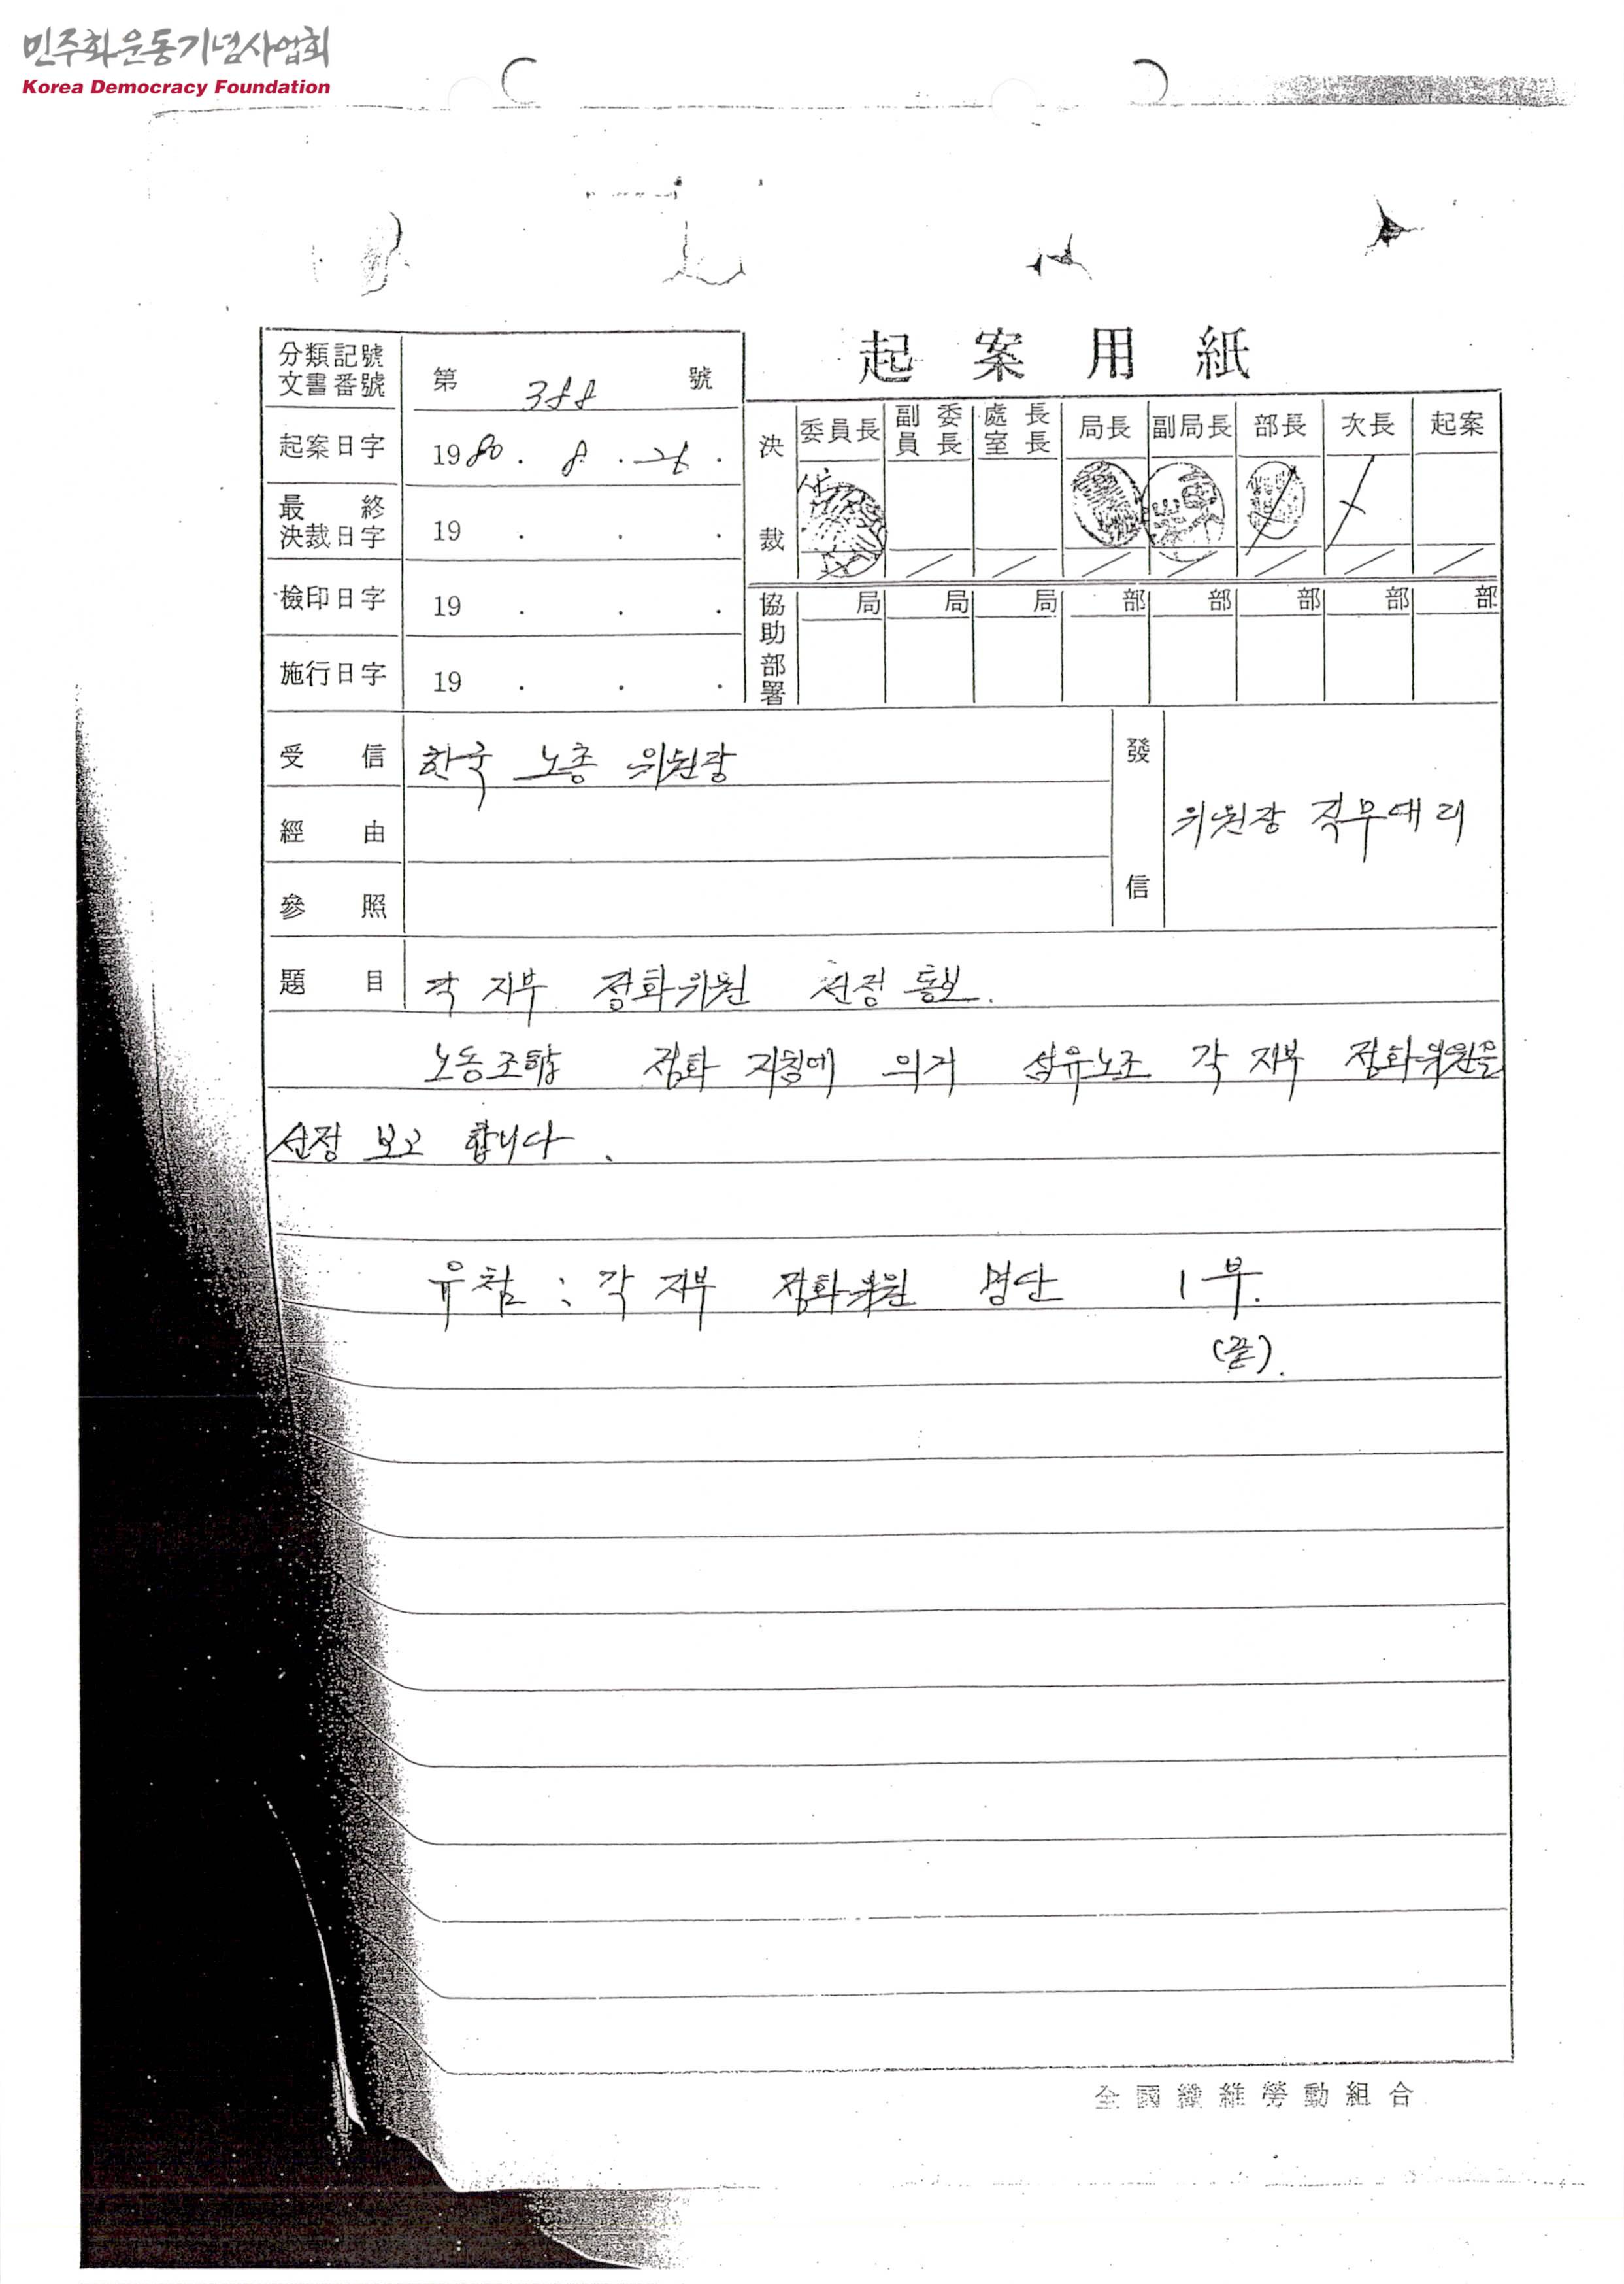 민주화운동기념사업회
Korea Democracy Foundation
起案用紙
分類記號
文書番號
第 388 號
起案日字 1980. 8. 26.
最終
決裁日字 19 . . .
檢印日字 19 . . .
施行日字 19 . . .
決裁 委員長 副委員長 處長室長 局長 副局長 部長 次長 起案
協助部署 局 局 局 部 部 部 部 部
受信 한국 노총 위원장
經由
參照
發信 위원장 직무대리
題目 각 지부 정화위원 선정 통보.
노동조합 정화 지침에 의거 섬유노조 각 지부 정화위원을
선정 보고 합니다.
유첨 : 각 지부 정화위원 명단 1부.
(끝).
全國纖維勞動組合